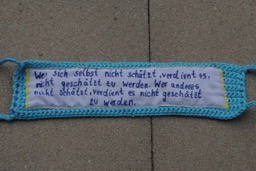 Wer sich selbst nicht schätzt, verdient es,
nicht geschätzt zu werden. Wer anderes
nicht schätzt, verdient es nicht geschätzt
zu werden.